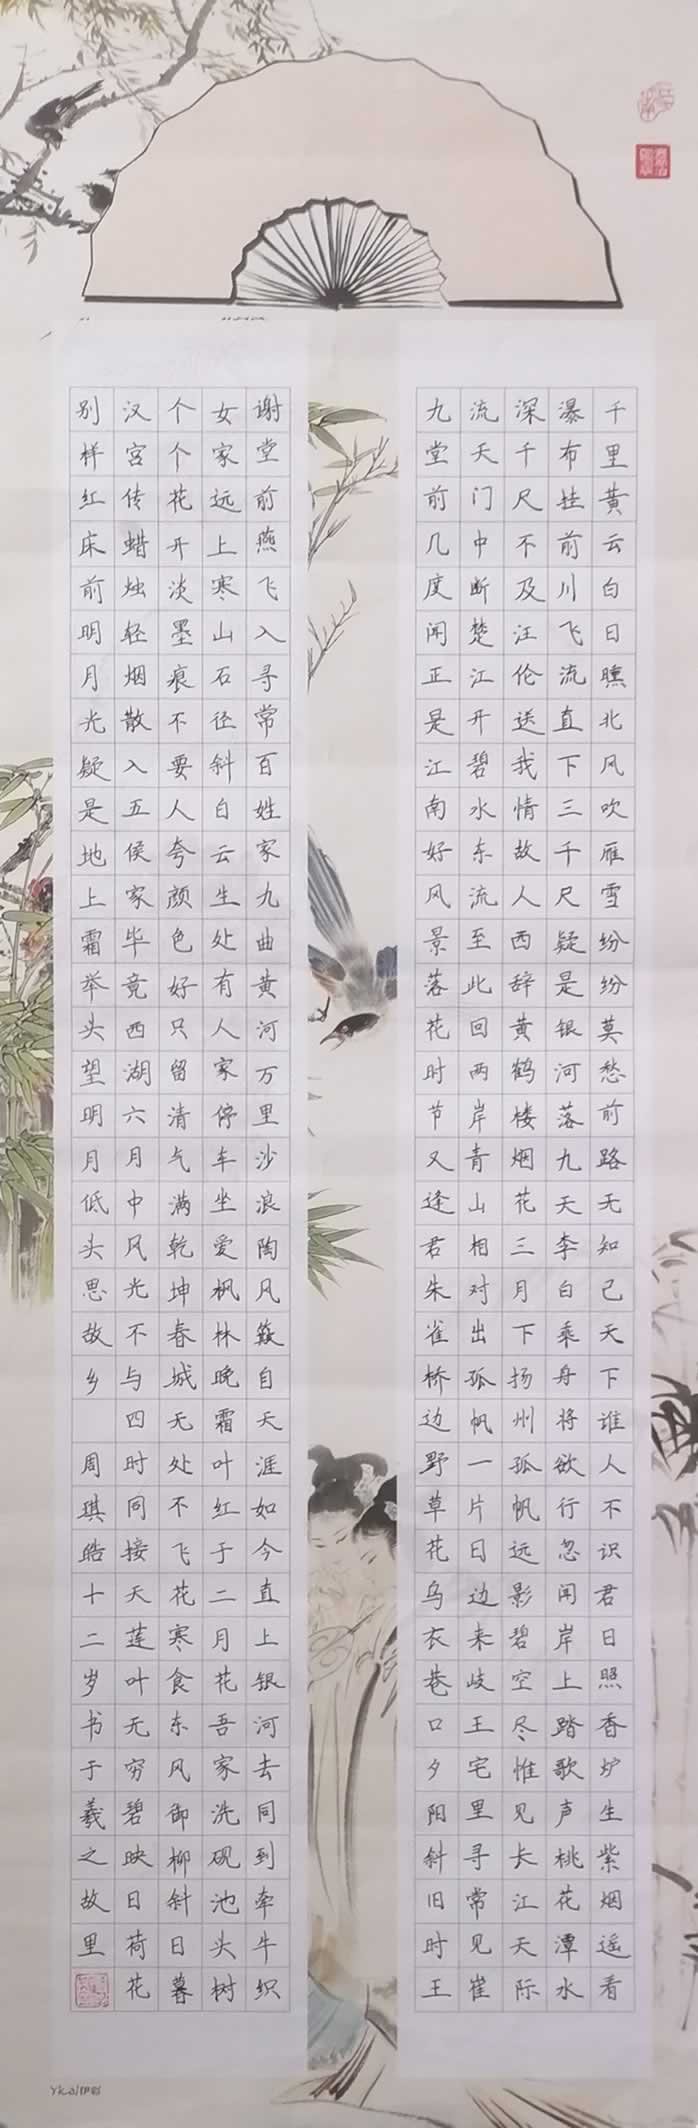 千里黄云白日曛北风吹雁雪纷纷莫愁前路无知己天下谁人不识君日照香炉生紫烟遥看
瀑布挂前川飞流直下三千尺疑是银河落九天李白乘舟将欲行忽闻岸上踏歌声桃花潭水
深千尺不及汪伦送我情故人西辞黄鹤楼烟花三月下扬州孤帆远影碧空尽惟见长江天际
流天门中断楚江开碧水东流至此回两岸青山相对出孤帆一片日边来岐王宅里寻常见崔
九堂前几度闻正是江南好风景落花时节又逢君朱雀桥边野草花乌衣巷口夕阳斜旧时王
谢堂前燕飞入寻常百姓家九曲黄河万里沙浪陶风簸自天涯如今直上银河去同到牵牛织
女家远上寒山石径斜白云生处有人家停车坐爱枫林晚霜叶红于二月花吾家洗砚池头树
个个花开淡墨痕不要人夸颜色好只留清气满乾坤春城无处不飞花寒食东风御柳斜日暮
汉宫传蜡烛轻烟散入五侯家毕竟西湖六月中风光不与四时同接天莲叶无穷碧映日荷花
别样红床前明月光疑是地上霜举头望明月低头思故乡 周琪皓十二岁书于羲之故里